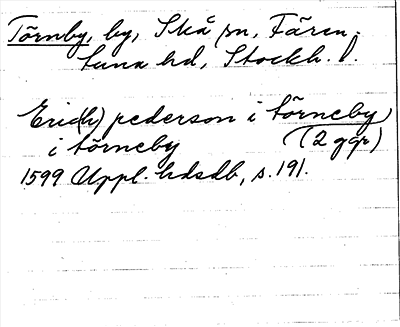 Törnby, by, Skå sn, Fären-
tuna hd, Stockh. l.
Eric(h) pederson i törneby
i törneby (2 ggr)
1599 Uppl. hdsdb, s. 191.